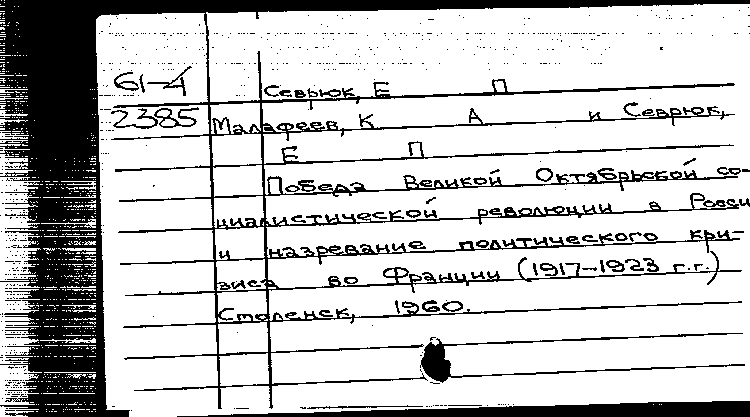 61-4 Севрюк, Е П
2385 Малафеев, К А и Севрюк,
Е П
Победа Великой Октябрьской со-
циалистической революции в Росси
и назревание политического кри-
зиса во Франции (1917-1923 г.г.)
Смоленск, 1960.